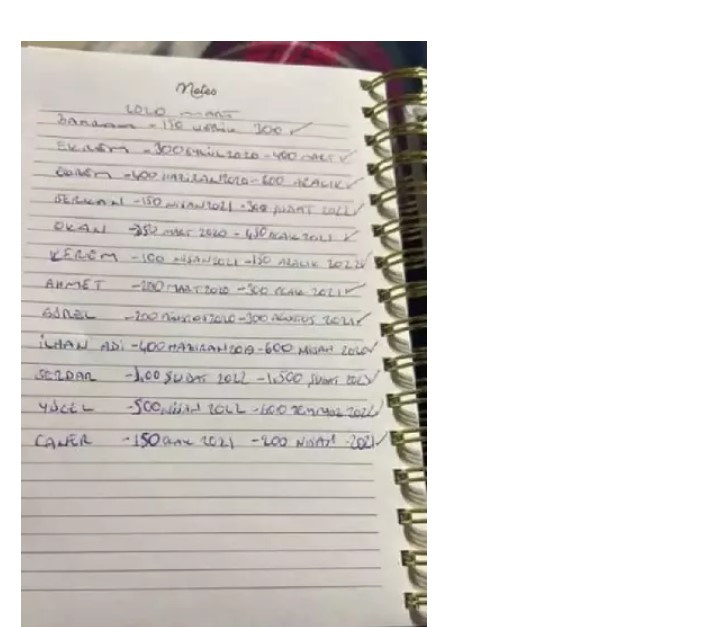 Notes
2020 MART
-150 300 ✓
EKREM -300 EYLÜL 2020 -400 MART ✓
-400 HAZİRAN 2020 -600 ARALIK ✓
SERKAN -150 NİSAN 2021 -300 ŞUBAT 2022 ✓
OKAN -350 MART 2020 -450 OCAK 2021 ✓
KEREM -100 NİSAN 2021 -150 ARALIK 2022 ✓
AHMET -200 MART 2020 -300 OCAK 2021 ✓
-200 2020 -300 AĞUSTOS 2021 ✓
İLHAN ADİ -400 HAZİRAN 2019 -600 NİSAN 2020 ✓
SERDAR ŞUBAT 2022 -1,500 ŞUBAT ✓
YÜCEL -500 NİSAN 2022 -600 TEMMUZ 2022 ✓
CAFER -150 OCAK 2021 -200 NİSAN 2021 ✓